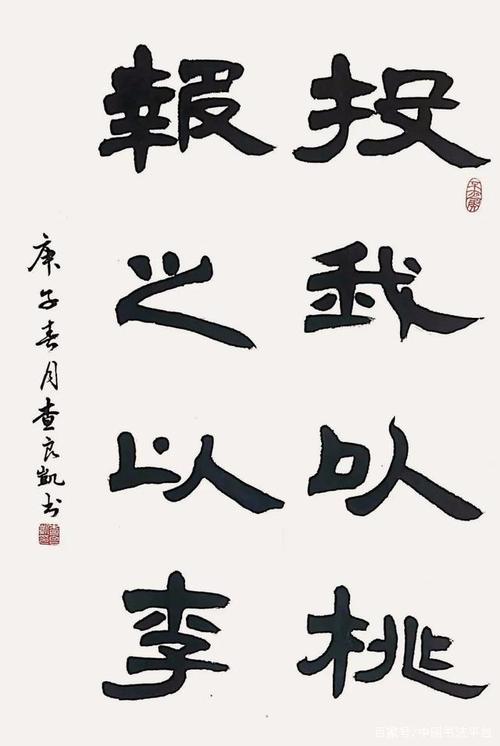 投我以桃
報之以李
庚子春月查良凯书
百家号/中国书法平台